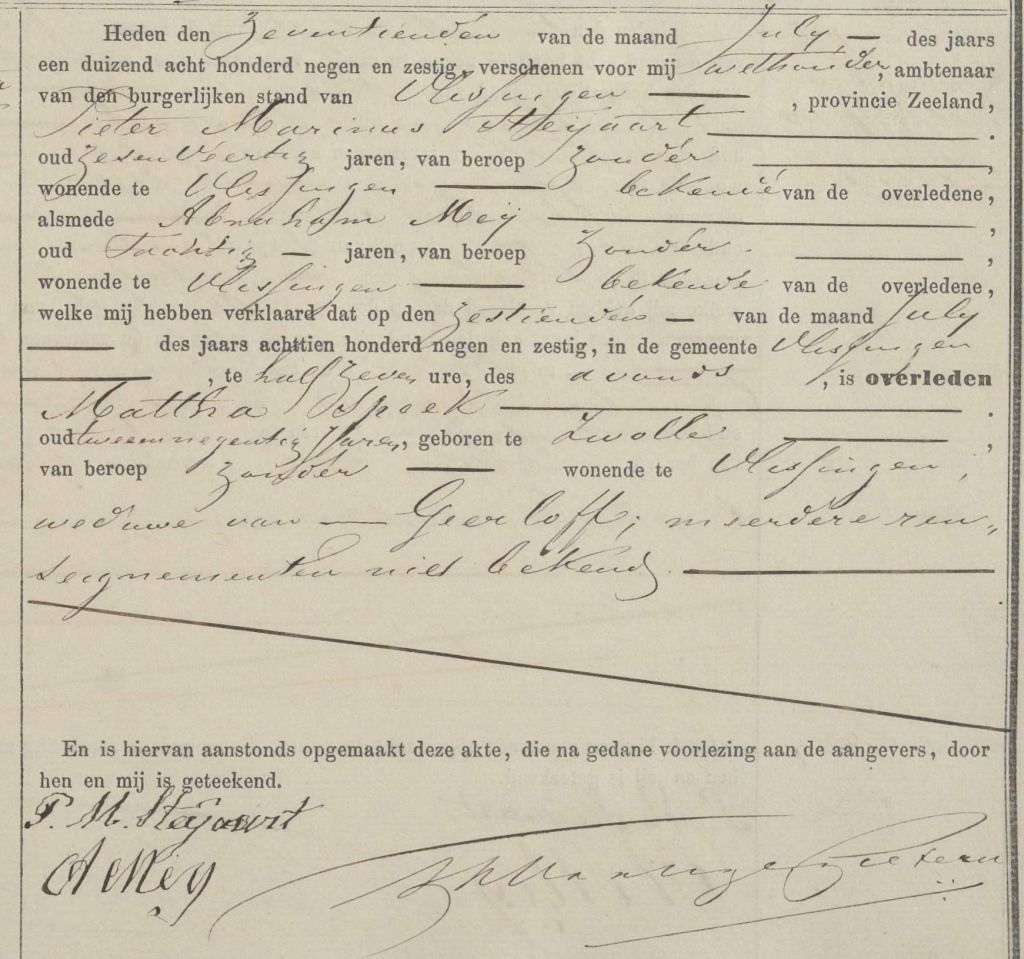 Heden den Zeventienden van de maand July, — des jaars
een duizend acht honderd negen en zestig, verschenen voor mij Wethouder, ambtenaar
van den burgerlijken stand van Vlissingen — , provincie Zeeland,
Pieter Marinus Steijaart — .
oud Zesen Veertig jaren, van beroep Zonder — ,
wonende te Vlissingen — bekende van de overledene,
alsmede Abraham Meij — ,
oud Tachtig — jaren, van beroep Zonder — ,
wonende te Vlissingen — bekende van de overledene,
welke mij hebben verklaard dat op den Zestienden — van de maand July
— des jaars achttien honderd negen en zestig, in de gemeente Vlissingen
— , te half Zeven ure, des avonds , is overleden
Mattha Speek — .
oud tweeennegentig Jaren, geboren te Zwolle — ,
van beroep Zonder — wonende te Vlissingen,
weduwe van — Geerloff; meerdere ren„
seignementen niet bekend. —
En is hiervan aanstonds opgemaakt deze akte, die na gedane voorlezing aan de aangevers, door
hen en mij is geteekend.
P. M. Steijaart
A Meij